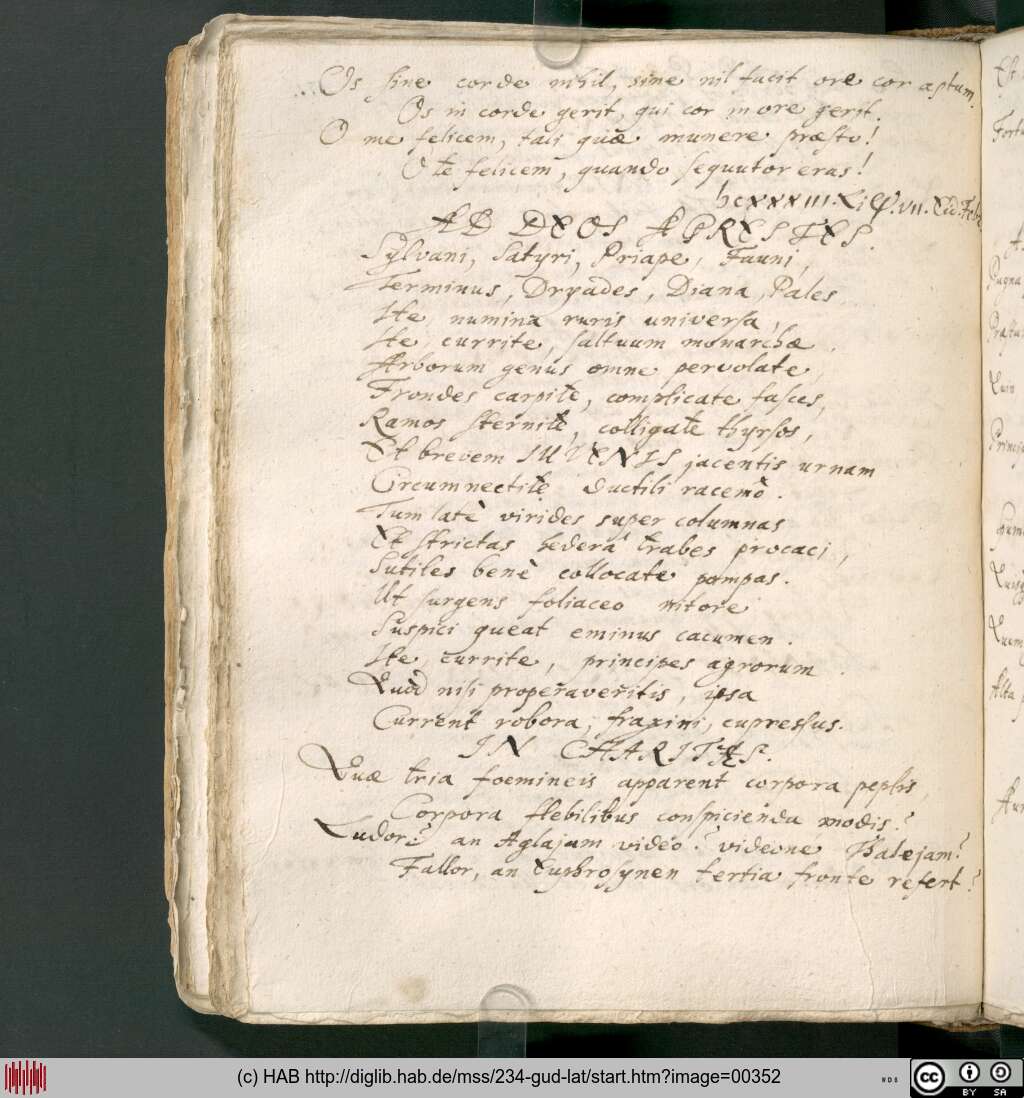 Os sine corde nihil, sine nil facit ore cor aptum.
Os in corde gerit, qui cor in ore gerit.
O me felicem, tali quae munere praesto!
O te felicem, quando sequutor eras!
AD DEOS AGRESTES.
Sylvani, Satyri, Priape, Fauni,
Terminus, Dryades, Diana, Pales
Ite, numina ruris universa,
Ite, currite, saltuum monarchae.
Arborum genus omne pervolate,
Frondes carpite, complicate fasces,
Ramos sternite, colligate thyrsos,
Et brevem IUVENIS jacentis urnam
Circumnectite ductili racemo.
Tum latè virides super columnas
Et strictas hederâ trabes procaci,
Sutiles benè collocate pompas.
Ut surgens foliaceo nitore
Suspici queat eminus cacumen.
Ite, currite, principes agrorum.
Quòd nisi properaveritis, ipsa
Current robora, fraxini, cupressus.
IN CHARITAS.
Quae tria foemineis apparent corpora peplis,
Corpora flebilibus conspicienda modis?
Ludor? an Aglajam video? videone Thalejam?
Fallor, an Euphrosynen tertia fronte refert?
(c) HAB http://diglib.hab.de/mss/234-gud-lat/start.htm?image=00352
WDB
cc BY SA